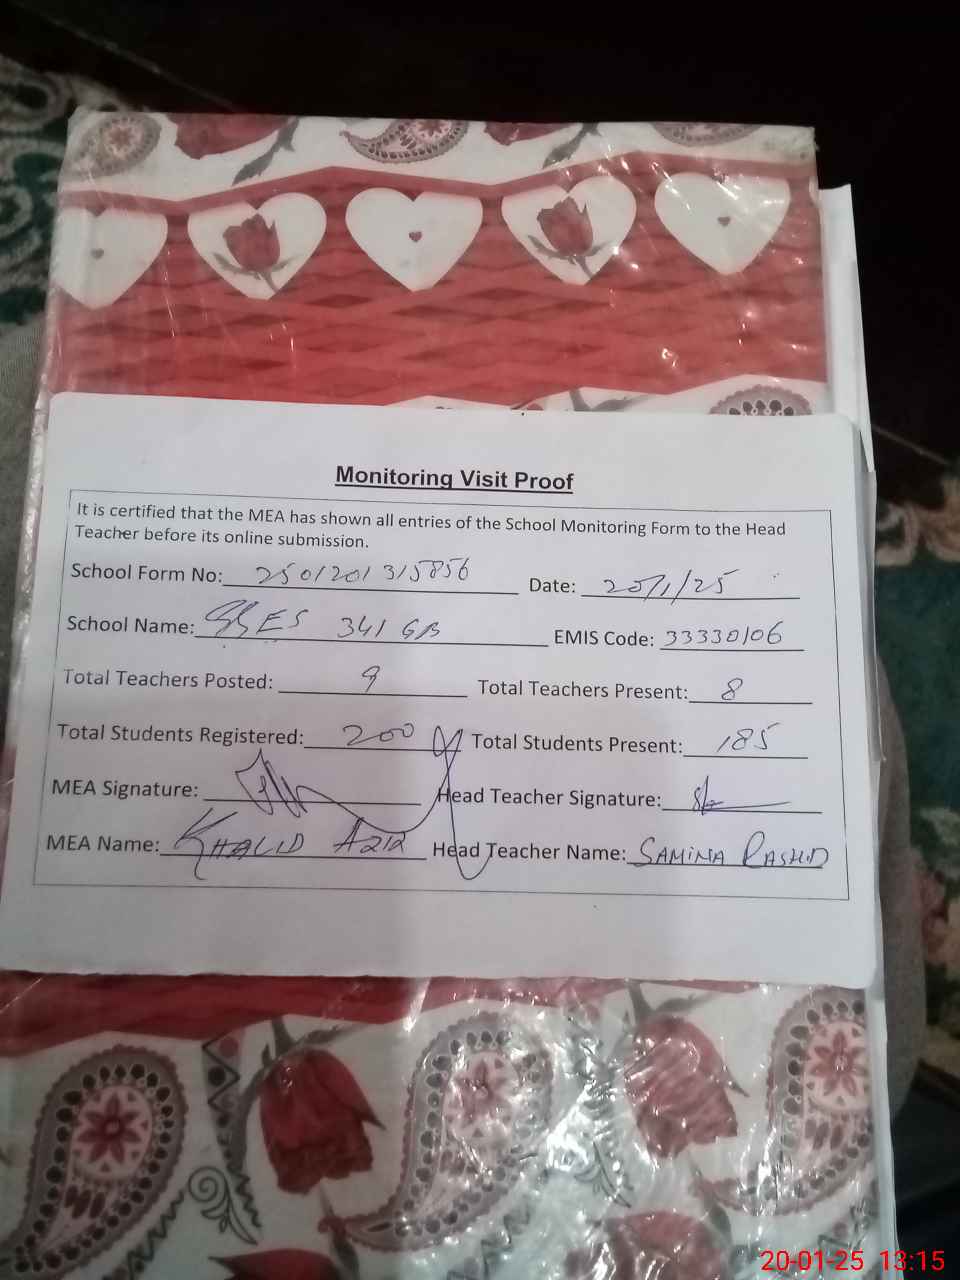 Monitoring Visit Proof
It is certified that the MEA has shown all entries of the School Monitoring Form to the Head
Teacher before its online submission.
School Form No: 2501201315856 Date: 20/1/25
School Name: GGES 341 GB EMIS Code: 33330106
Total Teachers Posted: 9 Total Teachers Present: 8
Total Students Registered: 200 Total Students Present: 185
MEA Signature: Head Teacher Signature:
MEA Name: KHALID AZIZ Head Teacher Name: SAMINA RASHID
20-01-25 13:15